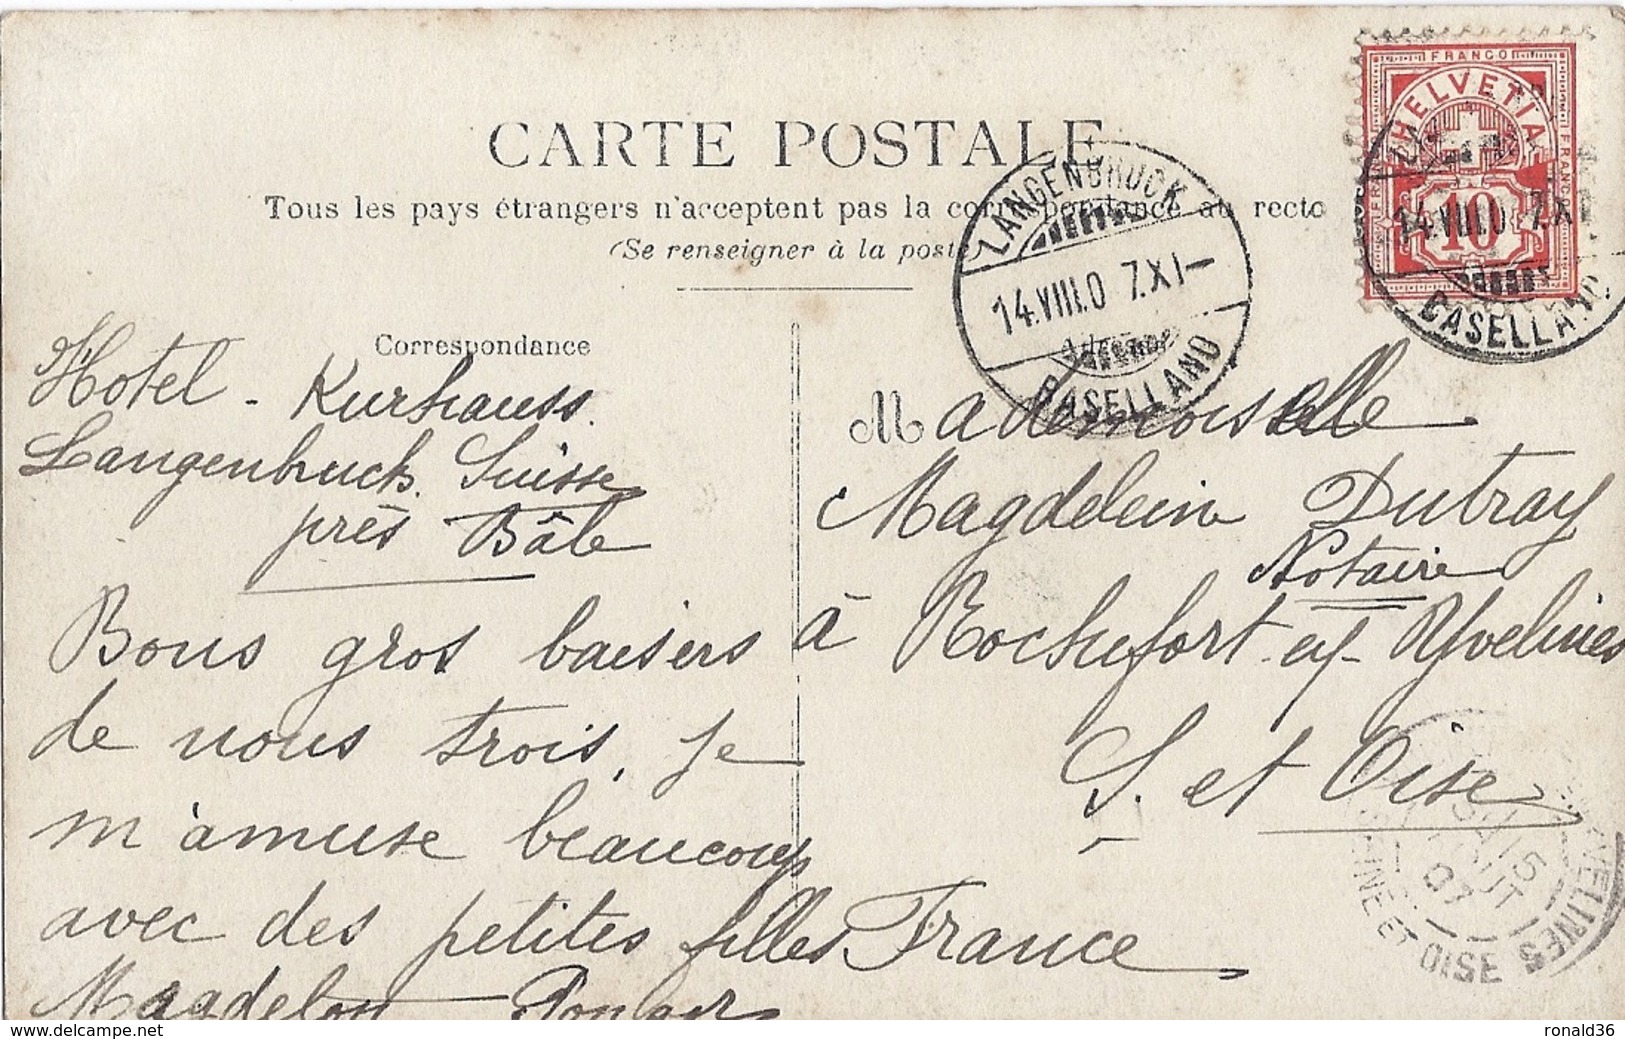 CARTE POSTALE
Tous les pays étrangers n'acceptent pas la correspondance au recto
(Se renseigner à la poste)
FRANCO
HELVETIA
10
LANGENBRUCK
14.VIII.07.XI-
BASELLAND
14.VIII.07.XI
BASELLAND
Correspondance
Adresse
Hotel - Kurhauss.
Langenbruck. Suisse
près Bâle
Bons gros baisers
de nous trois, je
m'amuse beaucoup
avec des petites filles
Magdelon
Mademoiselle
Magdelein Dutray
Notaire
à Rochefort en Yvelines
S. et Oise
France
15
AOUT
07
YVELINES
SEINE ET OISE
delcampe.net
ronald36